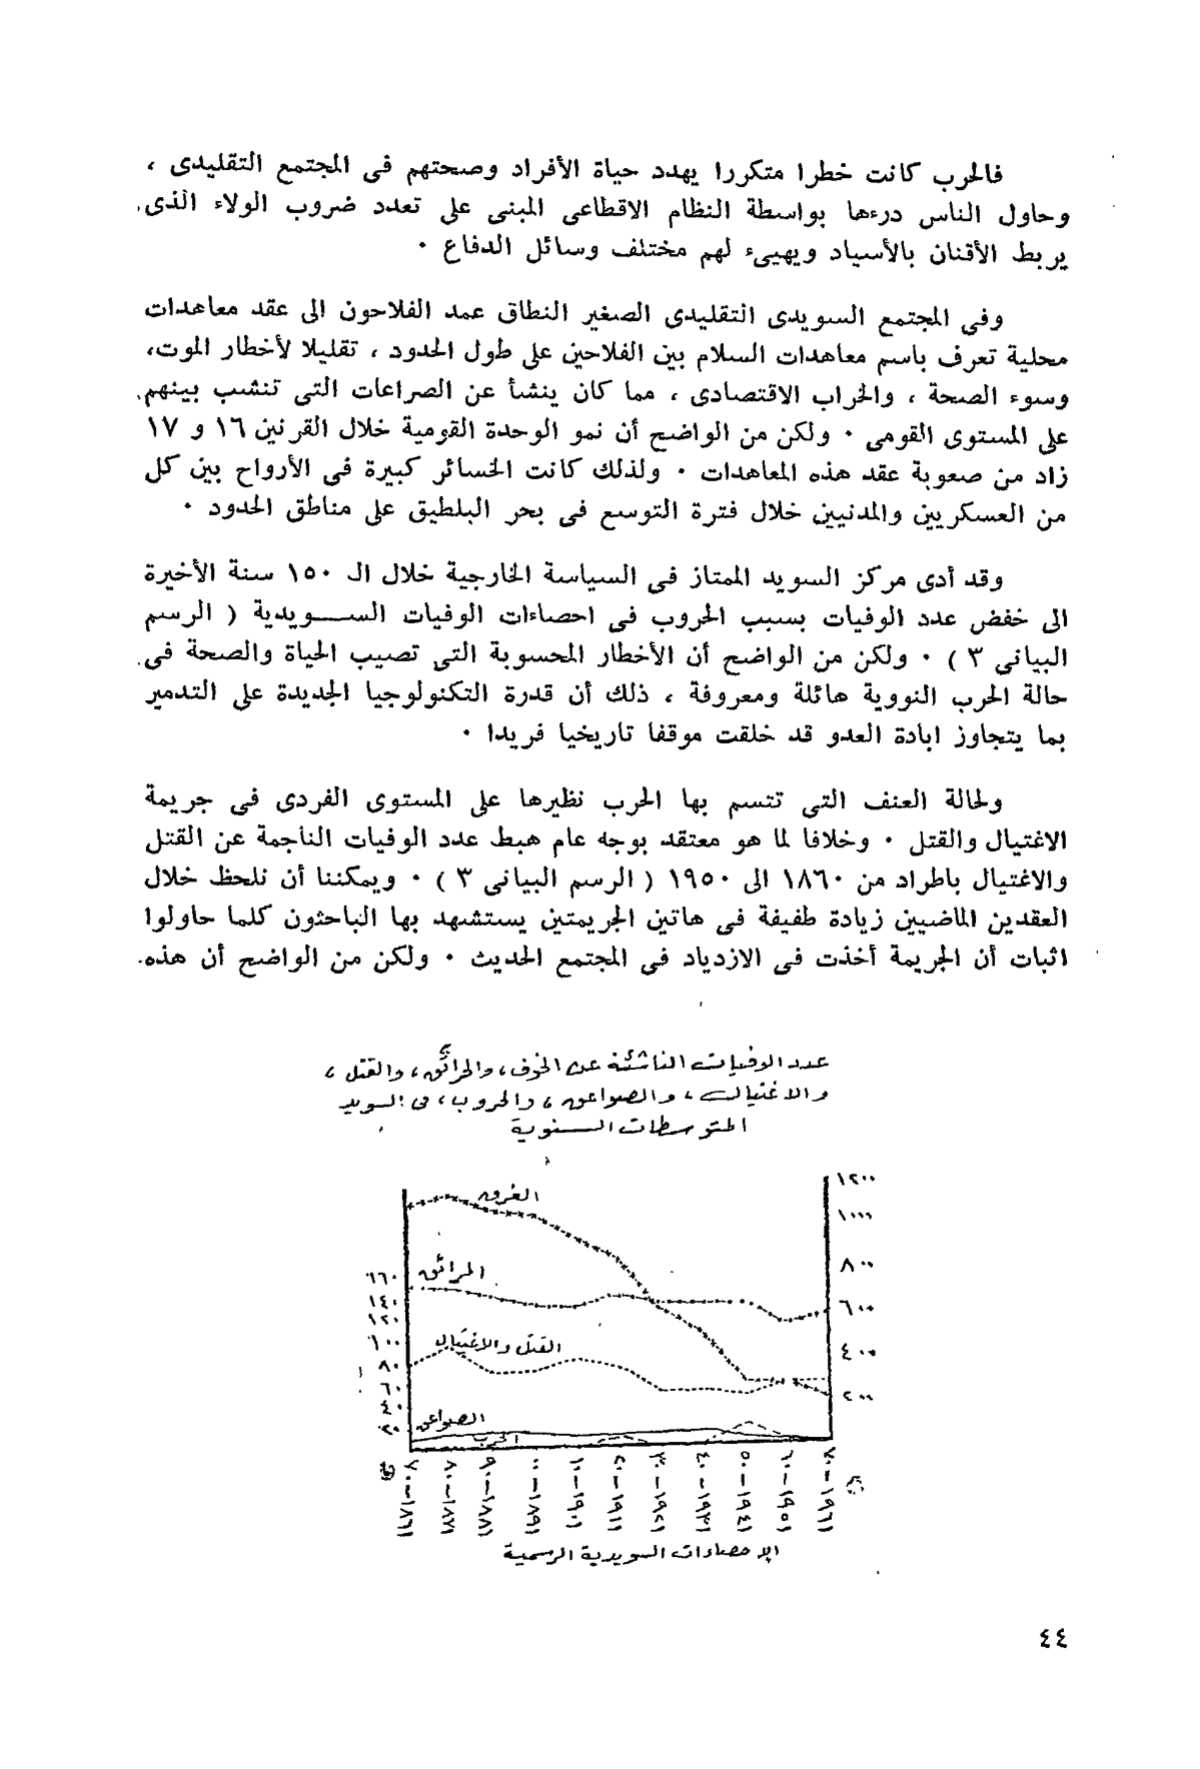 فالحرب كانت خطرا متكررا يهدد حياة الأفراد وصحتهم فى المجتمع التقليدى ،
وحاول الناس درءها بواسطة النظام الاقطاعى المبنى على تعدد ضروب الولاء الذى
يربط الأقنان بالأسياد ويهيىء لهم مختلف وسائل الدفاع ٠
وفى المجتمع السويدى التقليدى الصغير النطاق عمد الفلاحون الى عقد معاهدات
محلية تعرف باسم معاهدات السلام بين الفلاحين على طول الحدود ، تقليلا لأخطار الموت،
وسوء الصحة ، والخراب الاقتصادى ، مما كان ينشأ عن الصراعات التى تنشب بينهم
على المستوى القومى ٠ ولكن من الواضح أن نمو الوحدة القومية خلال القرنين ١٦ و ١٧
زاد من صعوبة عقد هذه المعاهدات ٠ ولذلك كانت الخسائر كبيرة فى الأرواح بين كل
من العسكريين والمدنيين خلال فترة التوسع فى بحر البلطيق على مناطق الحدود ٠
وقد أدى مركز السويد الممتاز فى السياسة الخارجية خلال الـ ١٥٠ سنة الأخيرة
الى خفض عدد الوفيات بسبب الحروب فى احصاءات الوفيات الســـويدية ( الرسم
البيانى ٣ ) ٠ ولكن من الواضح أن الأخطار المحسوبة التى تصيب الحياة والصحة فى
حالة الحرب النووية هائلة ومعروفة ، ذلك أن قدرة التكنولوجيا الجديدة على التدمير
بما يتجاوز ابادة العدو قد خلقت موقفا تاريخيا فريدا ٠
ولحالة العنف التى تتسم بها الحرب نظيرها على المستوى الفردى فى جريمة
الاغتيال والقتل ٠ وخلافا لما هو معتقد بوجه عام هبط عدد الوفيات الناجمة عن القتل
والاغتيال باطراد من ١٨٦٠ الى ١٩٥٠ ( الرسم البيانى ٣ ) ٠ ويمكننا أن نلحظ خلال
العقدين الماضيين زيادة طفيفة فى هاتين الجريمتين يستشهد بها الباحثون كلما حاولوا
اثبات أن الجريمة أخذت فى الازدياد فى المجتمع الحديث ٠ ولكن من الواضح أن هذه
عدد الوفيات الناشئة عن الخوف، والحرائق، والقتل ،
والاغتيال ، والصواعق ، والحروب، فى السويد
المتوسطات السنوية
١٢٠٠
الغرق
١٠٠٠
٨٠٠
الحرائق
١٦٠
١٤٠
٦٠٠
١٢٠
١٠٠
القتل والاغتيال
٤٠٠
٨٠
٦٠
٢٠٠
٤٠
الصواعق
٢٠
الحرب
١٨٦١-٧٠
١٨٧١-٨٠
١٨٨١-٩٠
١٨٩١-٠٠
١٩٠١-١٠
١٩١١-٢٠
١٩٢١-٣٠
١٩٣١-٤٠
١٩٤١-٥٠
١٩٥١-٦٠
١٩٦١-٧٠
الإحصاءات السويدية الرسمية
٤٤